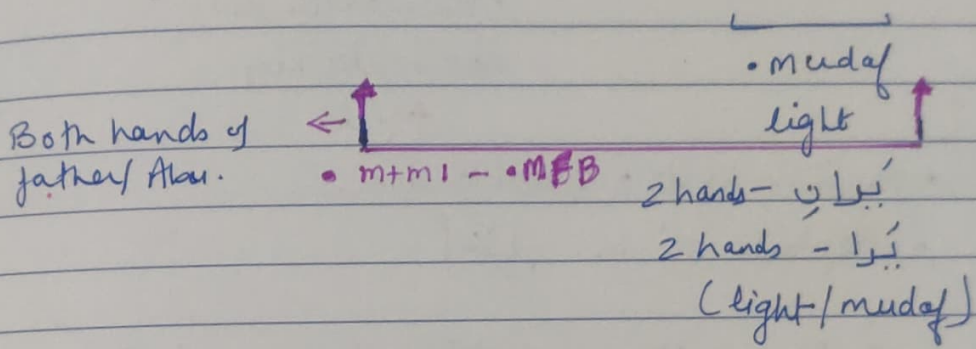 • mudaf
light
Both hands of ←
father/ Abu.
• m+mI - • MEB
2 hands - يَدانِ
2 hands - يَدا
(light/mudaf)